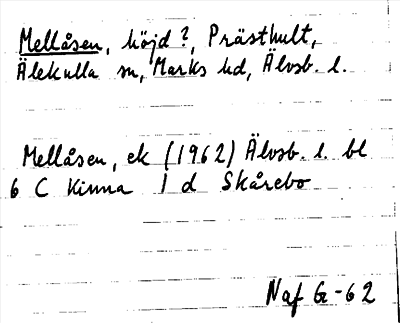 Mellåsen, höjd?, Prästhult,
Älekulla sn, Marks hd, Älvsb. l.
Mellåsen, ek (1962) Älvsb. l. bl
6 C Kinna 1 d Skårebo
Naf G-62